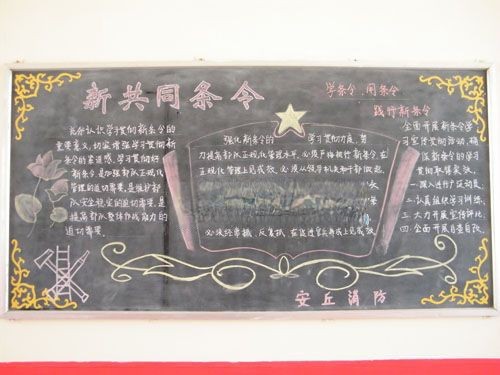 新共同条令
学条令 用条令
践行新条令
充分认识学习贯彻新条令的
重要意义,切实增强学习贯彻新
条令的责任感。学习贯彻新
条令是加强部队正规化
管理的迫切需要,是维护部
队安全稳定的迫切需要,是
提高部队整体作战能力的
迫切需要。
强化新条令的 学习贯彻力度,努
力提高部队正规化管理水平,必须
正规化管理上见成效,必须从领导机关和干部做起,
必须经常抓、反复抓,在
全面开展新条令学
习宣传贯彻活动,确
保新条令的学习
贯彻取得实效。
一.深入进行广泛动员
二.认真组织学习训练
三.大力开展宣传评比
四.全面开展自查自改.
安丘消防